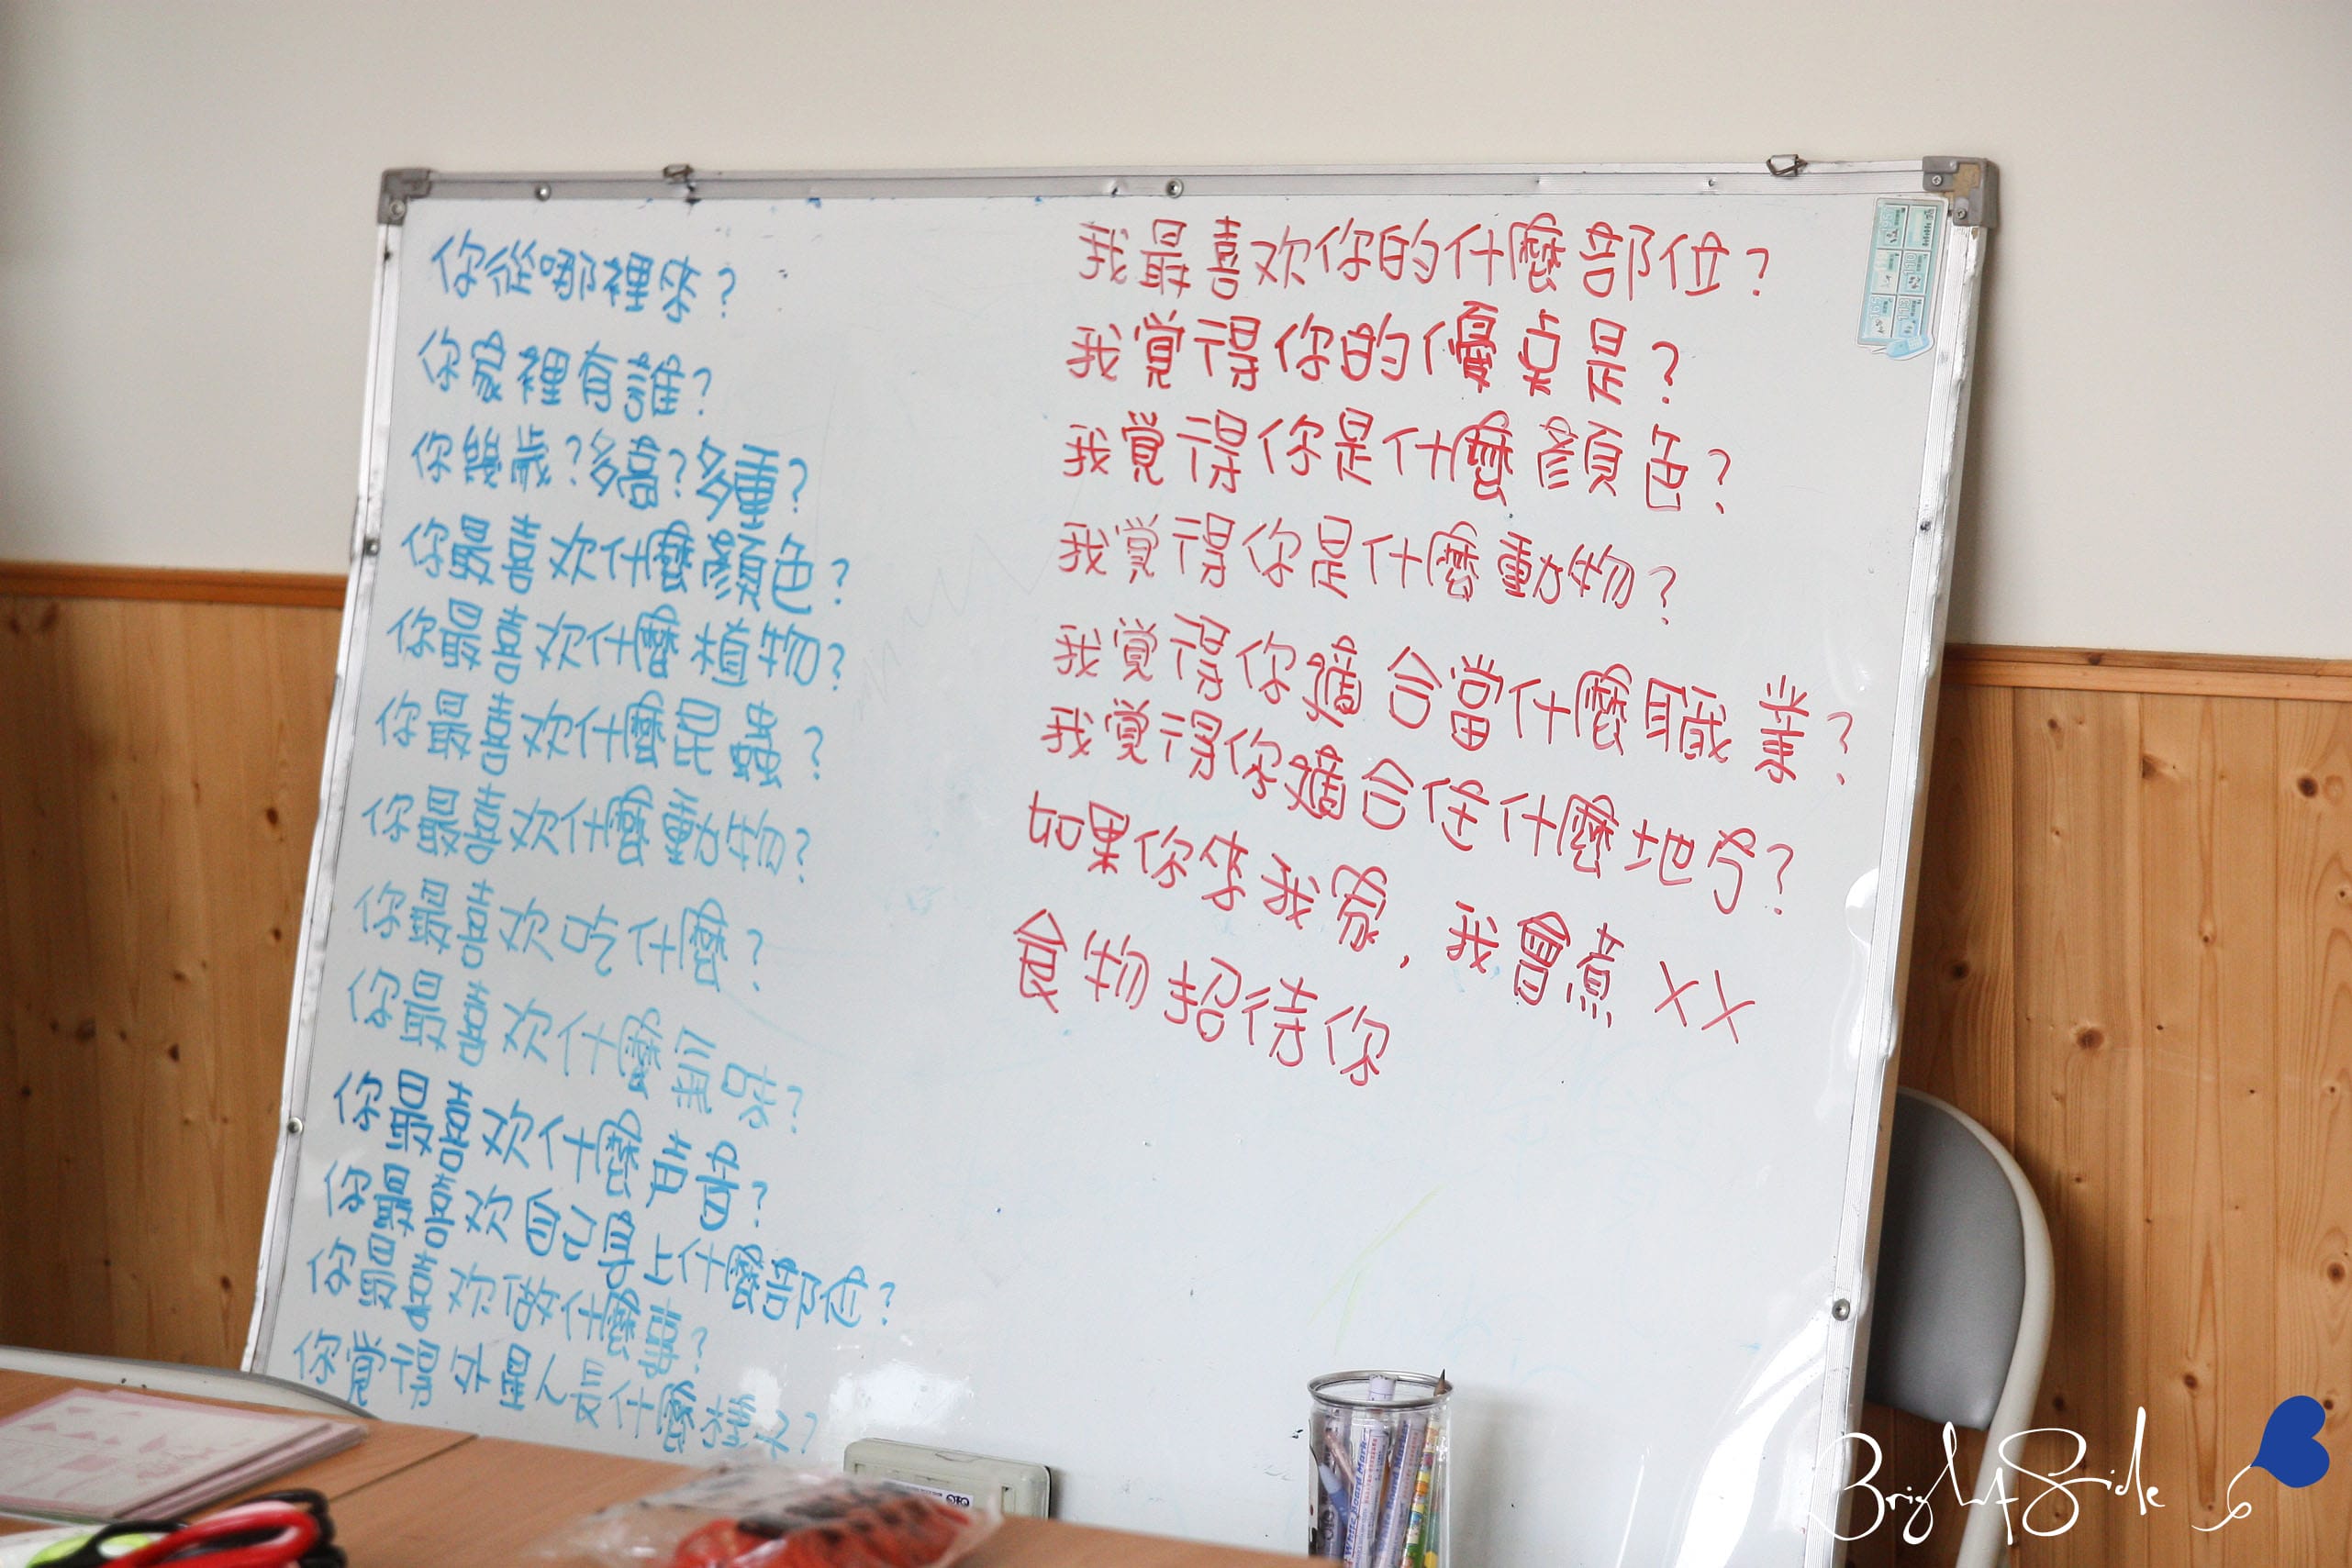 你從哪裡來？
你家裡有誰？
你幾歲？多高？多重？
你最喜欢什麼顏色？
你最喜欢什麼植物？
你最喜欢什麼昆蟲？
你最喜欢什麼動物？
你最喜欢吃什麼？
你最喜欢什麼氣味？
你最喜欢什麼聲音？
你最喜欢自己身上什麼部位？
你最喜欢做什麼事？
你覺得早瞑人是什麼樣人？
我最喜欢你的什麼部位？
我覚得你的優点是？
我覚得你是什麼顏色？
我覚得你是什麼動物？
我覚得你適合當什麼職業？
我覚得你適合住什麼地方？
如果你來我家，我會煮XX
食物招待你
Bright Side